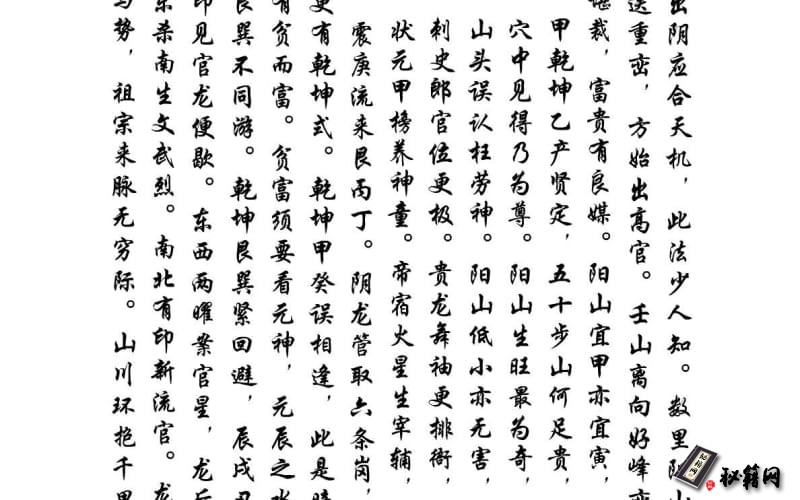 出阴应合天机，此法少人知。数里阳山
送重峦，方始出高官。壬山离向好峰峦
堪裁，富贵有良媒。阳山宜甲亦宜寅，
甲乾坤乙产贤定，五十步山何足贵，
穴中见得乃为尊。阳山生旺最为奇，
山头误认枉劳神。阳山低小亦无害，
刺史郎官位更极。贵龙舞袖更排衙，
状元甲榜养神童。帝宿火星生宰辅，
震庚流来艮丙丁。阴龙管取六条岗，
更有乾坤式。乾坤甲癸误相逢，此是
有贫而富。贫富须要看元神，元辰之水
艮巽不同游。乾坤艮巽紧回避，辰戌丑
印见官龙便歇。东西两曜案官星，龙后
东杀南生文武烈。南北有印新流官。龙
与势，祖宗来脉无穷际。山川环抱千里
秘籍网